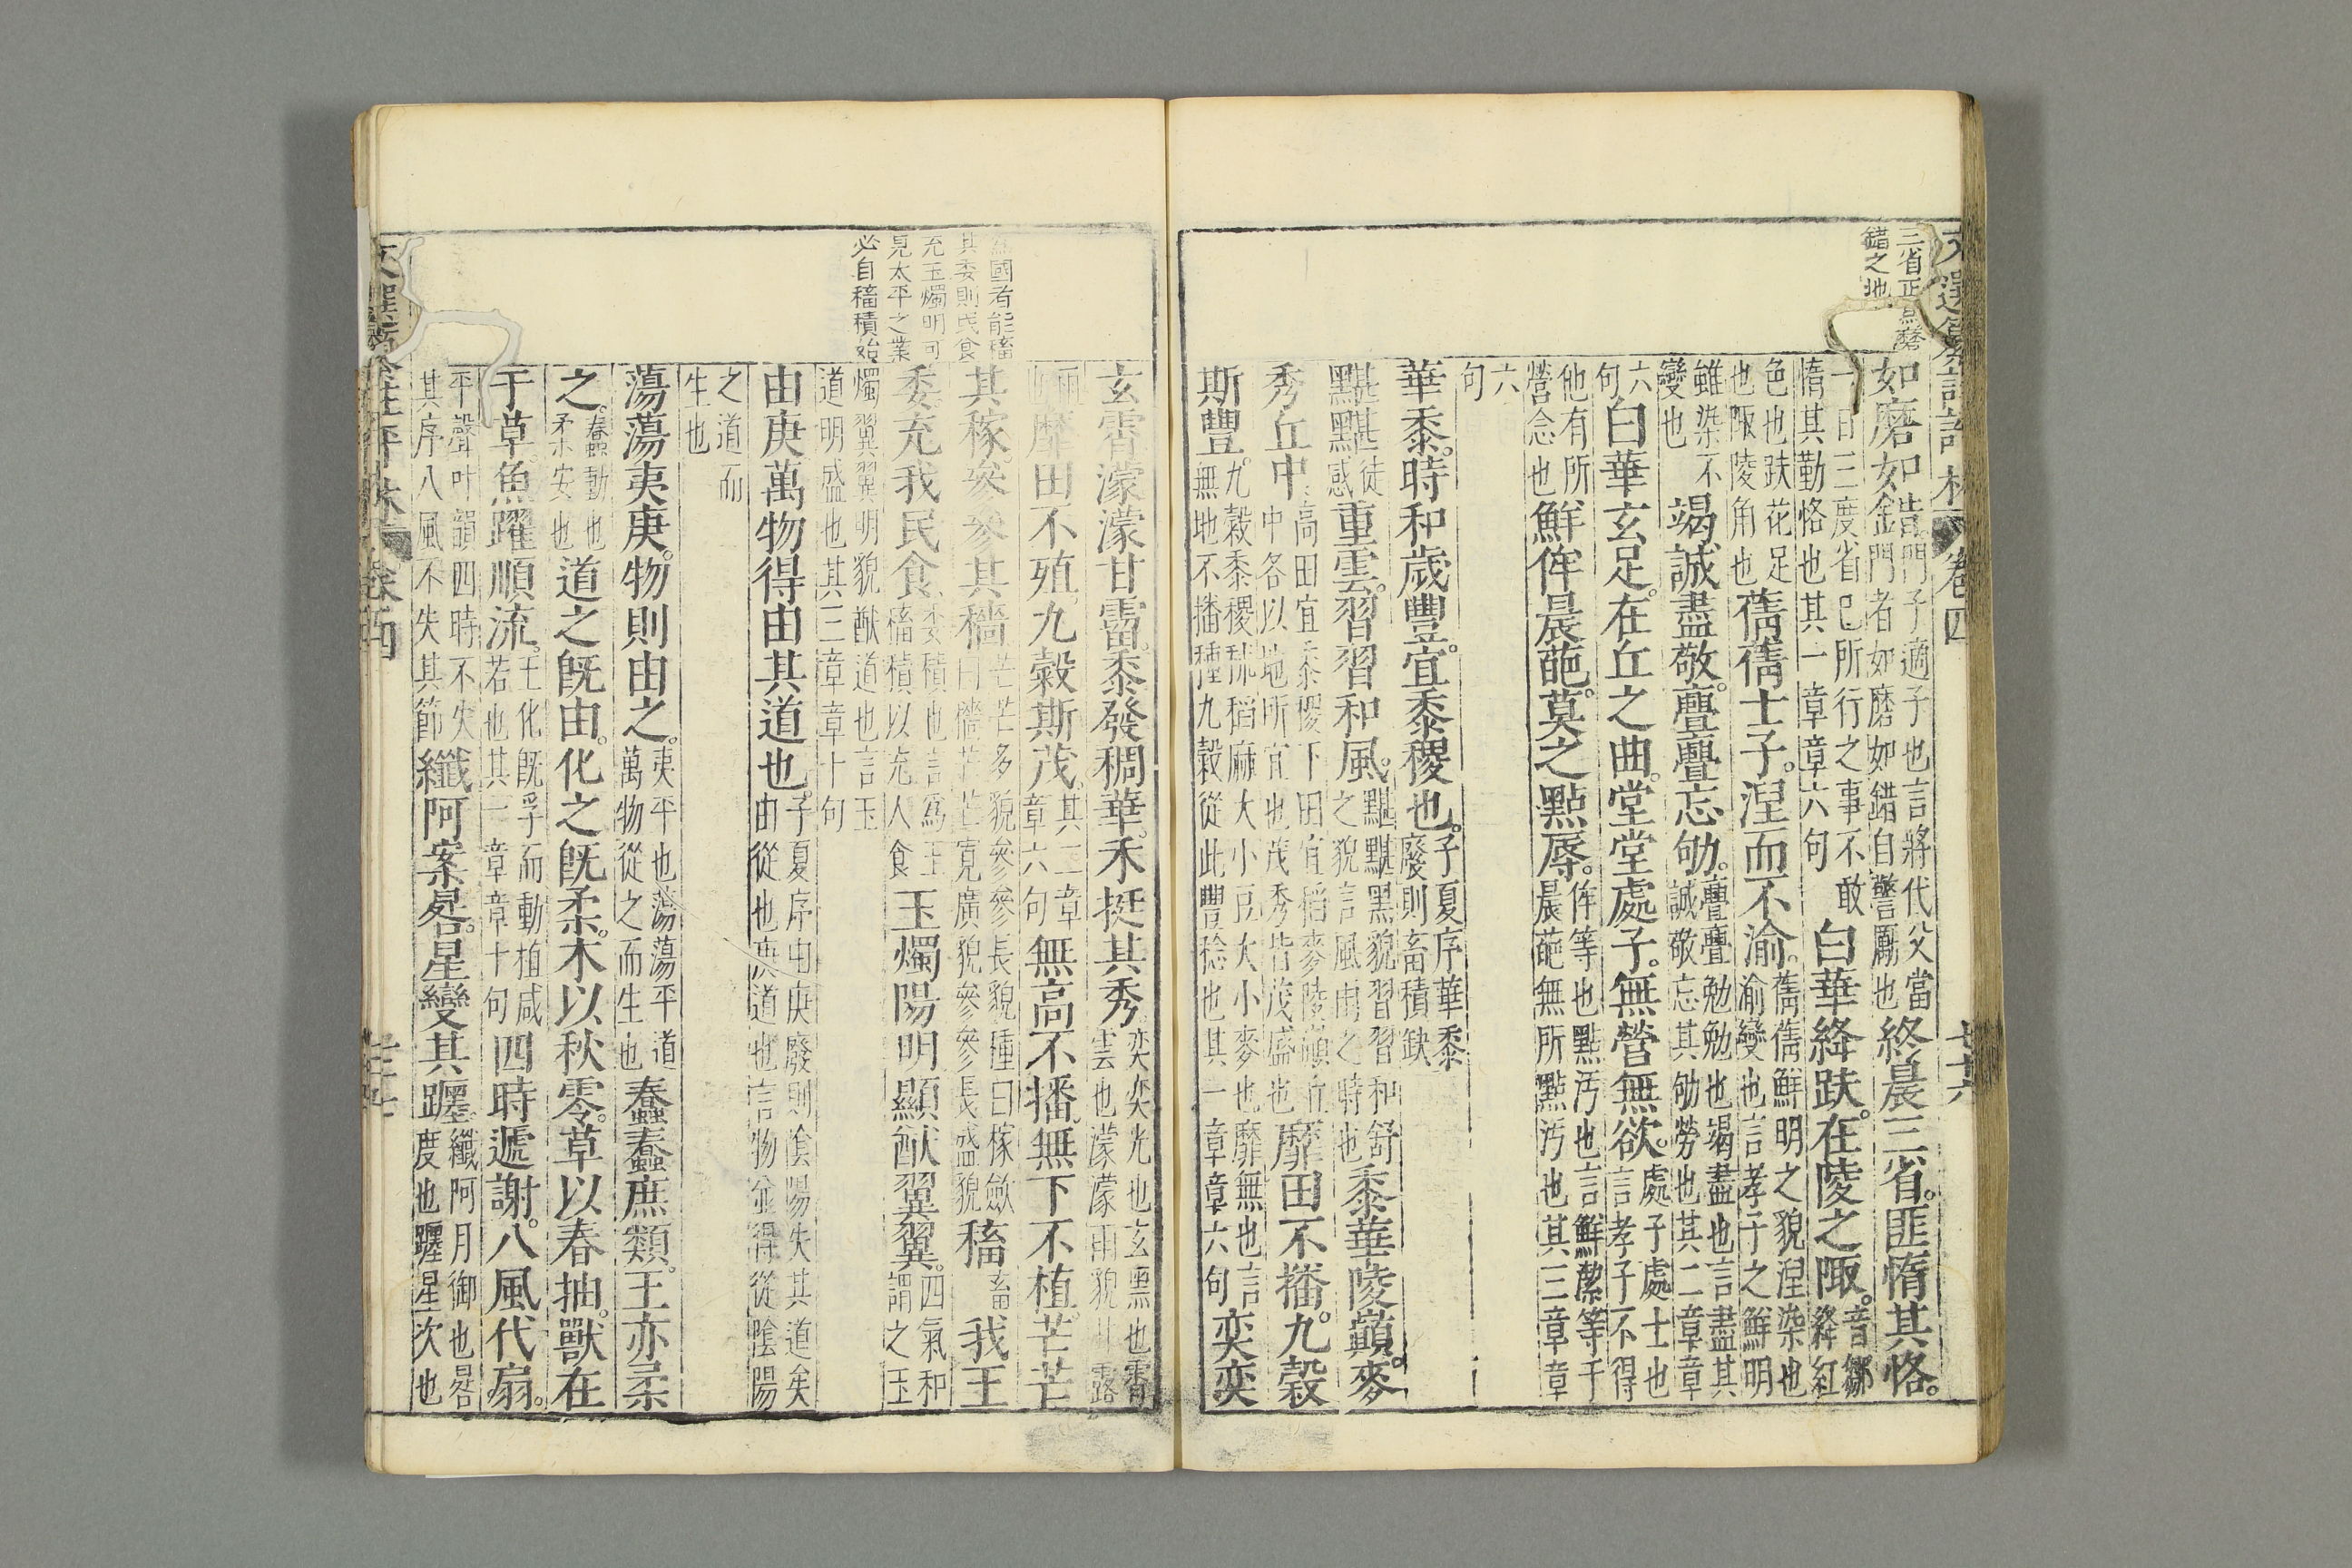 三省正是磨
錯之地
如磨如錯門子適子也言將代父當
金門者如磨如錯自警厲也終晨三省匪惰其恪
一日三度省己所行之事不敢
惰其勤恪也其一章章六句白華絳趺在陵之陬音鄒
絳紅
色也趺花足
也陬陵角也蒨蒨士子涅而不渝蒨蒨鮮明之貌涅染也
渝變也言孝子之鮮明
雖染不
變也竭誠盡敬亹亹忘劬亹亹勉勉也竭盡也言盡其
誠敬忘其劬勞也其二章章
六
句白華玄足在丘之曲堂堂處子無營無欲處子處士也
言孝子不得
他有所
營念也鮮侔晨葩莫之點辱侔等也點汚也言鮮潔等于
晨葩無所點汚也其三章章
六
句
華黍時和歲豐宜黍稷也子夏序華黍
廢則畜積缺
黮黮徒
感重雲習習和風黮黮黑貌習習和舒
之貌言風雨之時也黍華陵巔麥
秀丘中高田宜黍稷下田宜稻麥陵巔丘
中各以地所宜也茂秀皆茂盛也靡田不播九穀
斯豐九穀黍稷秫稻麻大小豆大小麥也靡無也言
無地不播種九穀從此豐稔也其一章章六句奕奕
玄霄濛濛甘霤黍發稠華禾挺其秀奕奕光也玄黑也霄
雲也濛濛雨貌甘露
靡田不殖九穀斯茂其二章
章六句無高不播無下不植芒芒
其稼參參其穡芒芒多貌參參長貌種曰稼斂
曰穡芒芒寬廣貌參參長盛貌稸畜我王
委充我民食委積也言爲王
稸積以充人食玉燭陽明顯猷翼翼四氣和
謂之玉
燭翼翼明貌猷道也言玉
道明盛也其三章章十句
爲國者能稸
其委則民食
充玉燭明可
見太平之業
必自稸積始
由庚萬物得由其道也子夏序由庚廢則陰陽失其道矣
由從也庚道也言物並得從陰陽
之道而
生也
蕩蕩夷庚物則由之夷平也蕩蕩平道
萬物從之而生也蠢蠢庶類王亦柔
之蠢動也
柔安也道之旣由化之旣柔木以秋零草以春抽獸在
于草魚躍順流王化旣孚而動植咸
若也其一章章十句四時遞謝八風代扇
平聲叶韻四時不失
其序八風不失其節纖阿案晷星變其躔纖阿月御也晷
度也躔星次也